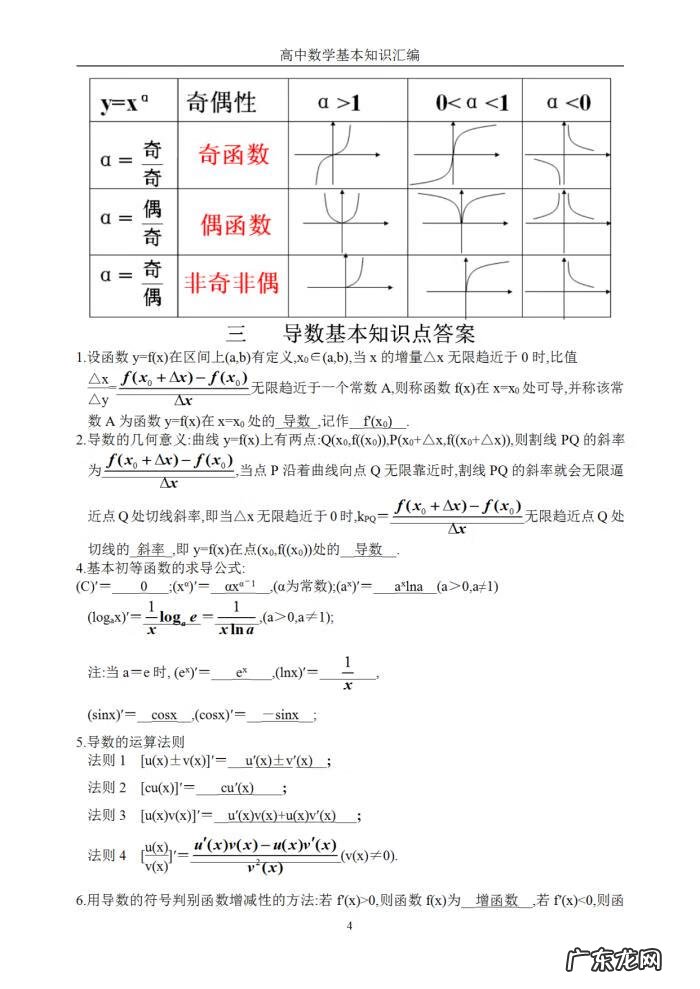 高中数学基本知识汇编
y=xᵅ 奇偶性 α>1 0<α<1 α<0
α=奇/奇 奇函数
α=偶/奇 偶函数
α=奇/偶 非奇非偶
三 导数基本知识点答案
1.设函数 y=f(x)在区间上(a,b)有定义,x₀∈(a,b),当 x 的增量△x 无限趋近于 0 时,比值
△x/△y=f(x₀+Δx)−f(x₀)/Δx无限趋近于一个常数 A,则称函数 f(x)在 x=x₀ 处可导,并称该常
数 A 为函数 y=f(x)在 x=x₀ 处的_导数_,记作__f′(x₀)__.
2.导数的几何意义:曲线 y=f(x)上有两点:Q(x₀,f((x₀)),P(x₀+△x,f((x₀+△x)),则割线 PQ 的斜率
为f(x₀+Δx)−f(x₀)/Δx,当点 P 沿着曲线向点 Q 无限靠近时,割线 PQ 的斜率就会无限逼
近点 Q 处切线斜率,即当△x 无限趋近于 0 时,kPQ=f(x₀+Δx)−f(x₀)/Δx无限趋近点 Q 处
切线的_斜率_,即 y=f(x)在点(x₀,f((x₀))处的__导数__.
4.基本初等函数的求导公式:
(C)′=____0____;(xᵅ)′=__αxᵅ⁻¹__,(α为常数);(aˣ)′=___aˣlna__(a>0,a≠1)
(logₐx)′=1/x logₐe=1/xlna,(a>0,a≠1);
注:当 a=e 时, (eˣ)′=___eˣ____,(lnx)′=___1/x___,
(sinx)′=__cosx__,(cosx)′=__−sinx__;
5.导数的运算法则
法则 1 [u(x)±v(x)]′=___u′(x)±v′(x)__;
法则 2 [cu(x)]′=____cu′(x)____;
法则 3 [u(x)v(x)]′=__u′(x)v(x)+u(x)v′(x)___;
法则 4 [u(x)/v(x)]′=u′(x)v(x)−u(x)v′(x)/v²(x)(v(x)≠0).
6.用导数的符号判别函数增减性的方法:若 f′(x)>0,则函数 f(x)为__增函数__,若 f′(x)<0,则函
4
广东龙网